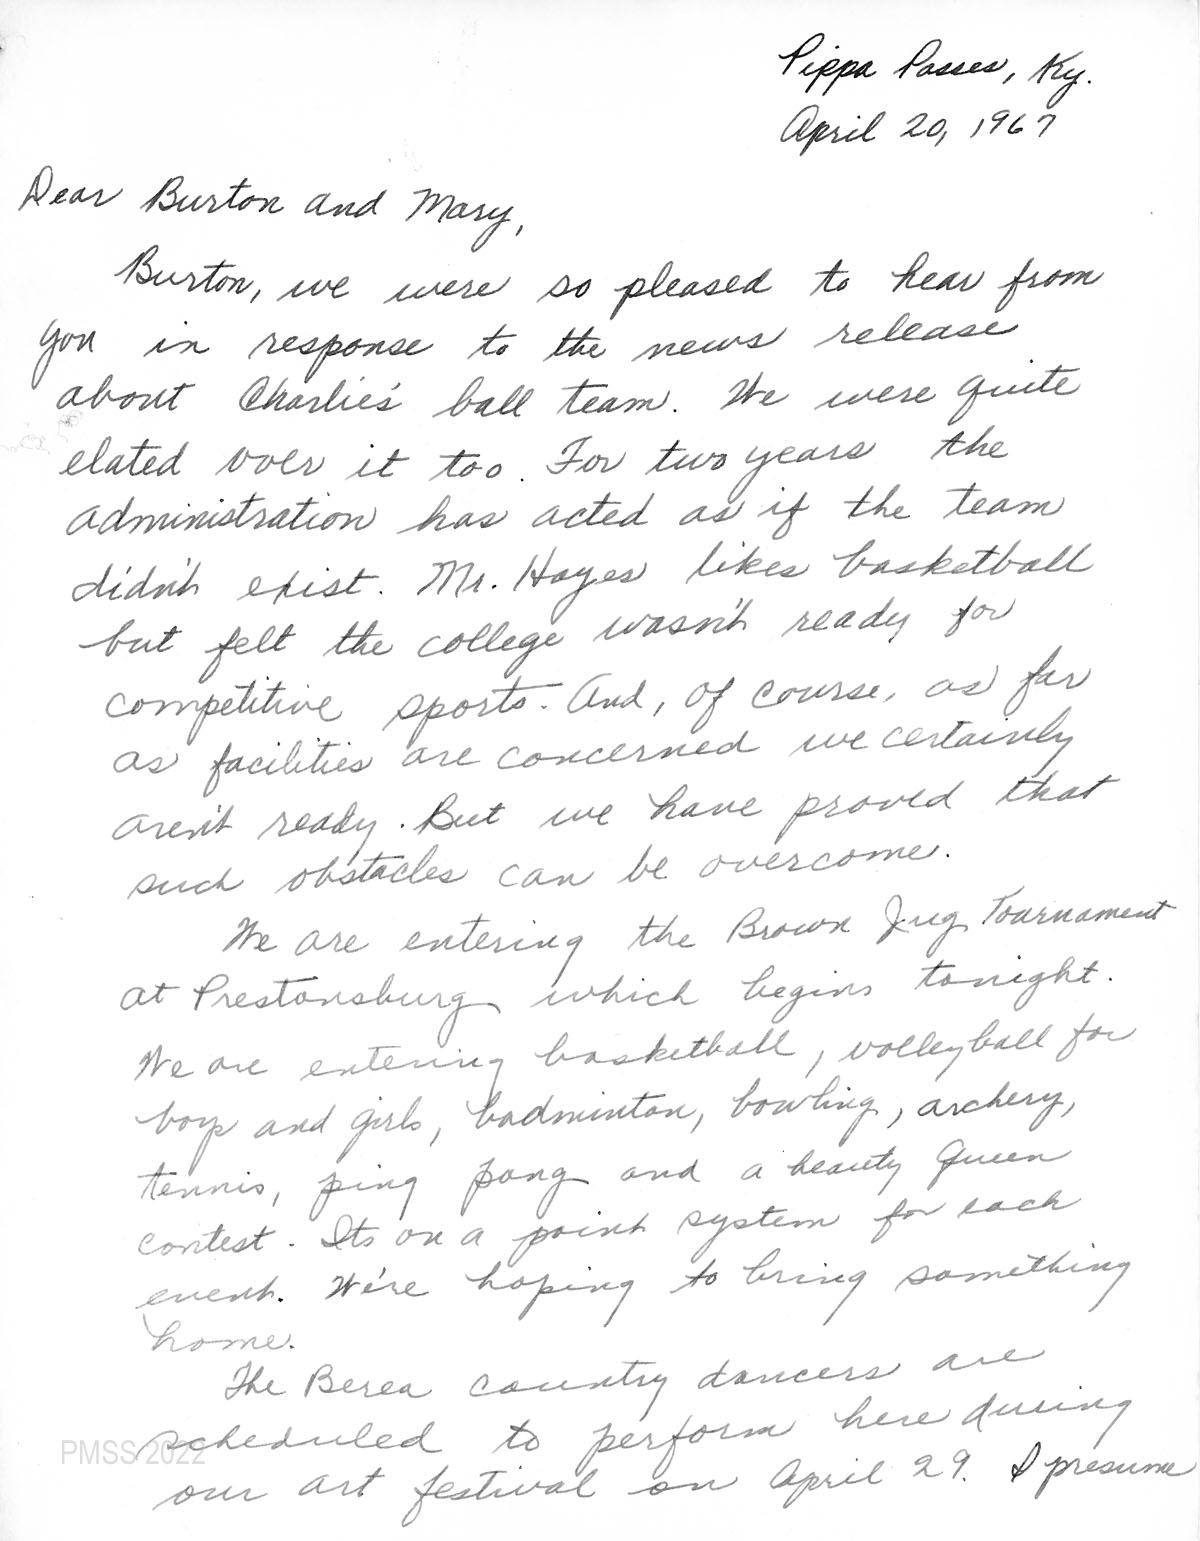 Pippa Passes, Ky.
April 20, 1967
Dear Burton and Mary,
Burton, we were so pleased to hear from
you in response to the news release
about Charlie's ball team. We were quite
elated over it too. For two years the
administration has acted as if the team
didn't exist. Mr. Hayes likes basketball
but felt the college wasn't ready for
competitive sports. And, of course, as far
as facilities are concerned we certainly
aren't ready. But we have proved that
such obstacles can be overcome.
We are entering the Brown Jug Tournament
at Prestonsburg which begins tonight.
We are entering basketball, volleyball for
boys and girls, badminton, bowling, archery,
tennis, ping pong and a beauty queen
contest. Its on a point system for each
event. We're hoping to bring something
home.
The Berea country dancers are
scheduled to perform here during
our art festival on April 29. I presume
PMSS 2022